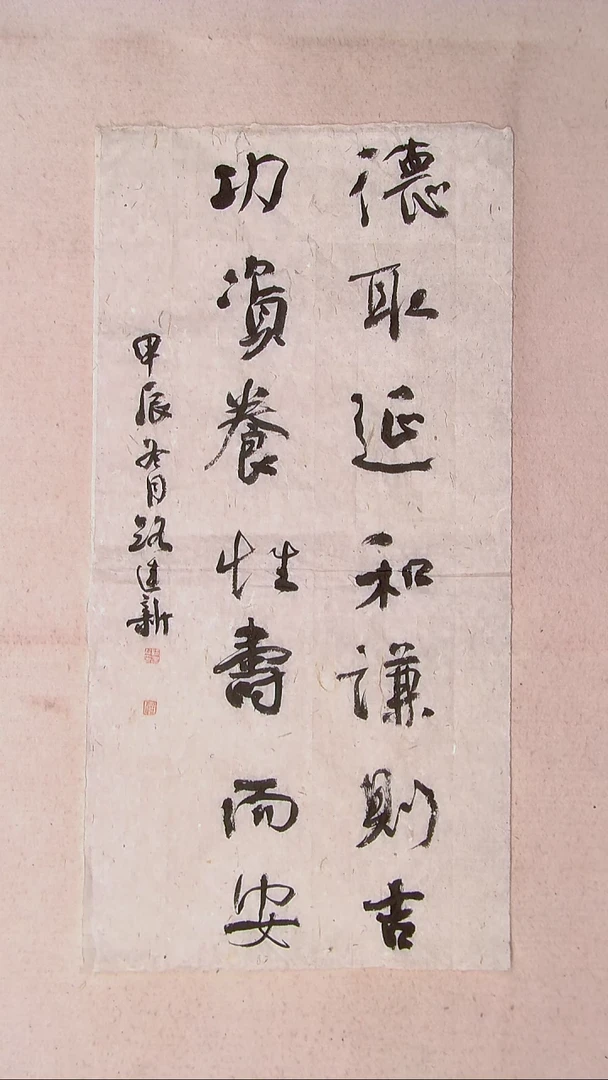 德取延和謙則吉
功資養性壽而安
甲辰冬月路建新